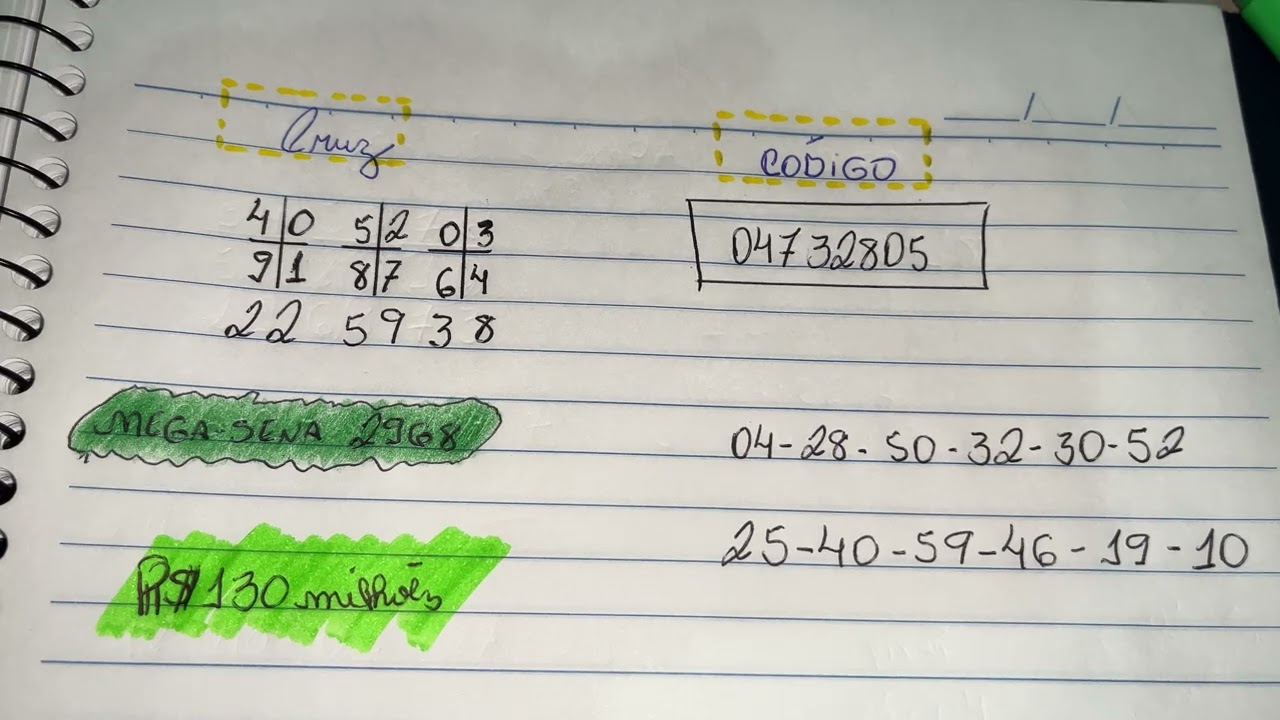 Cruz
4|0 5|2 0|3
9|1 8|7 6|4
22 59 38
MEGA-SENA 2968
R$130 milhões
CÓDIGO
04732805
04-28-50-32-30-52
25-40-59-46-19-10